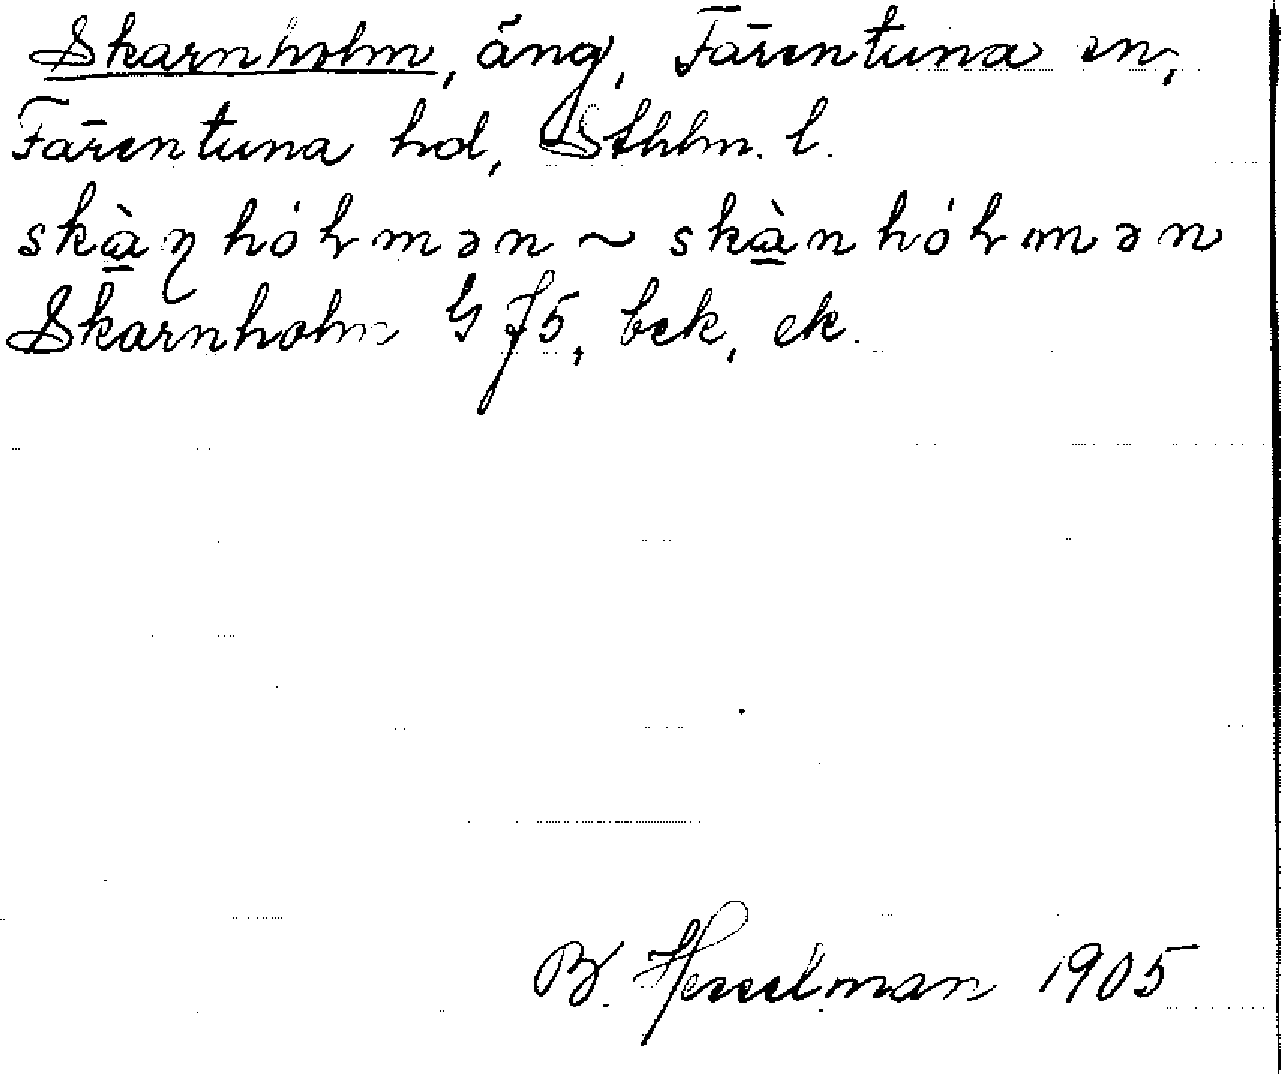 Skarnholm, äng, Färentuna sn,
Färentuna hd, Sthlm. l.
skàɳhóɫmən ~ skànhóɫmən
Skarnholm G J5, bek, ek.
B. Hesselman 1905